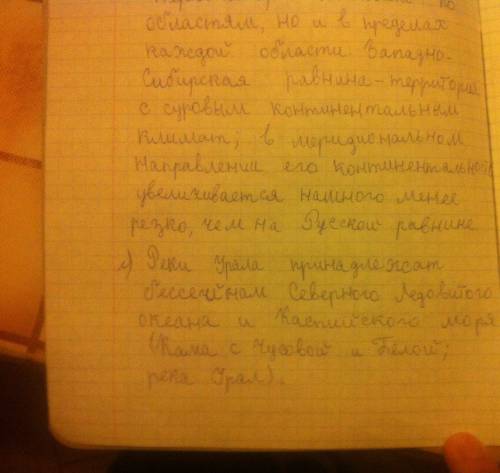 по
областям, но и в пределах
каждой области Западно-
Сибирская равнина - территория
с суровым континентальным
климат; в меридиональном
направлении его континентальность
увеличивается намного менее
резко, чем на Русской равнине
с) Реки Урала принадлежат
бессейнам Северного Ледовитого
океана и Каспийского моря
(Кама с Чусовой и Белой;
река Урал).